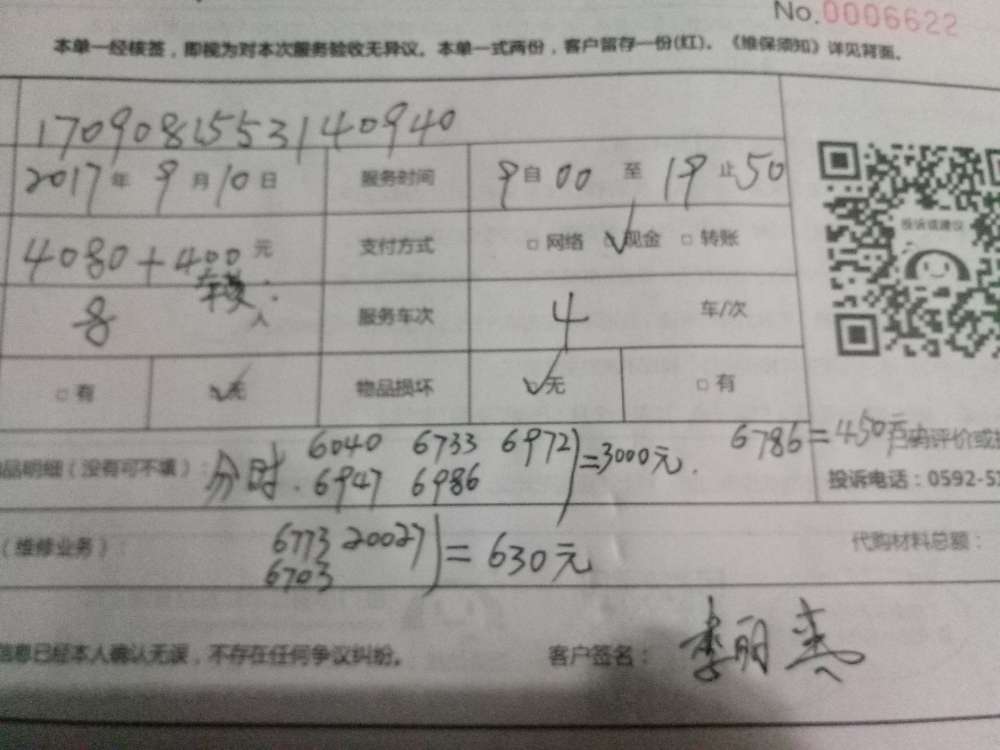 No.0006622
本单一经核签，即视为对本次服务验收无异议。本单一式两份，客户留存一份(红)。《维保须知》详见背面。
170908155314 0940
2017年 9月10日 服务时间 9自00 至 19止50
4080+400元 支付方式 □网络 ☑现金 □转账
8 人 服务车次 4 车/次
投诉或建议
□有 ☑无 物品损坏 ☑无 □有
品明细（没有可不填）： 分时. 6040 6733 6972 =3000元. 6786=450元 评价或
6947 6986
投诉电话：0592-5
（维修业务）： 6773 20027 =630元 代购材料总额：
6703
信息已经本人确认无误，不存在任何争议纠纷。 客户签名： 李丽